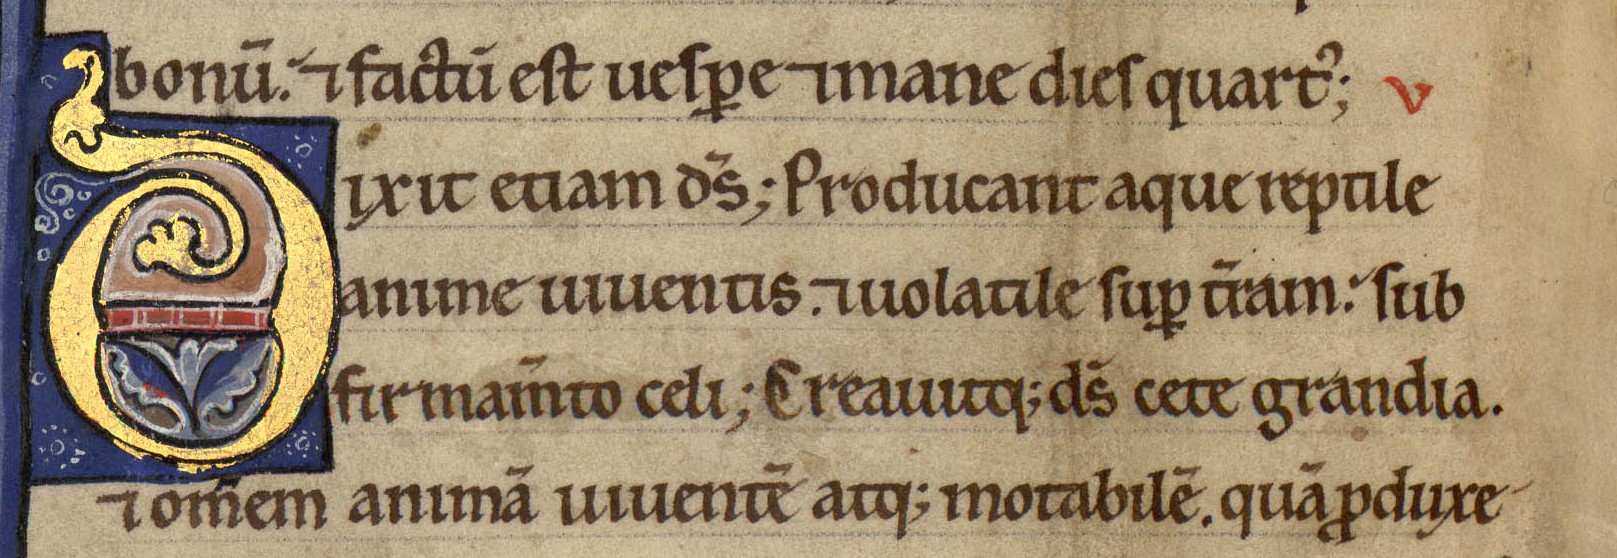 bonū. ⁊ factū est uesꝑe ⁊ mane dies quartꝰ; v
Dixit etiam ds̄; Producant aque reptile
anime uiuentis. ⁊ uolatile suꝑ tr̄am: sub
firmam̄to celi; Creauitq; ds̄ cete grandia.
⁊ om̄em animā uiuentē atq; motabilē. quā ꝓduxe-